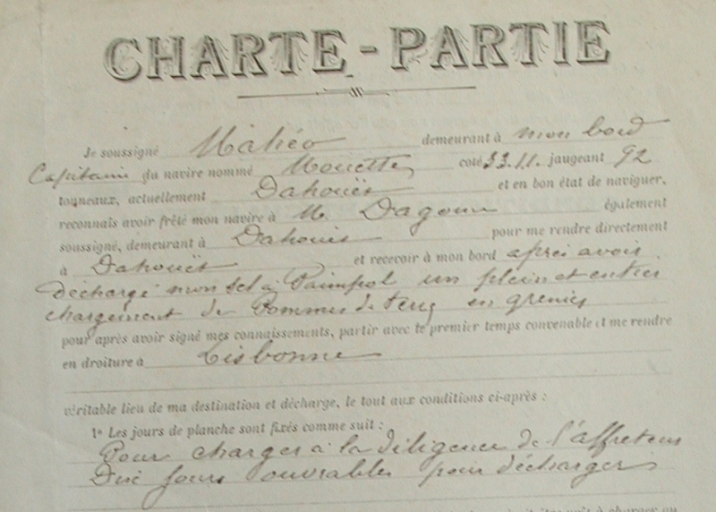 CHARTE-PARTIE
Je soussigné Mahéo demeurant à mon bord
Capitaine du navire nommé Mouette, coté 3.3.11. jaugeant 92
tonneaux, actuellement Dahouët et en bon état de naviguer,
reconnais avoir frêté mon navire à M. Dagorne également
soussigné, demeurant à Dahouët pour me rendre directement
à Dahouët et recevoir à mon bord après avoir
déchargé mon sel à Paimpol un plein et entier
chargement de Pommes de terre en grenier
pour après avoir signé mes connaissements, partir avec le premier temps convenable et me rendre
en droiture à Lisbonne
véritable lieu de ma destination et décharge, le tout aux conditions ci-après :
1° Les jours de planche sont fixés comme suit :
Pour charger à la diligence de l'affreteur
Dix jours ouvrables pour décharger